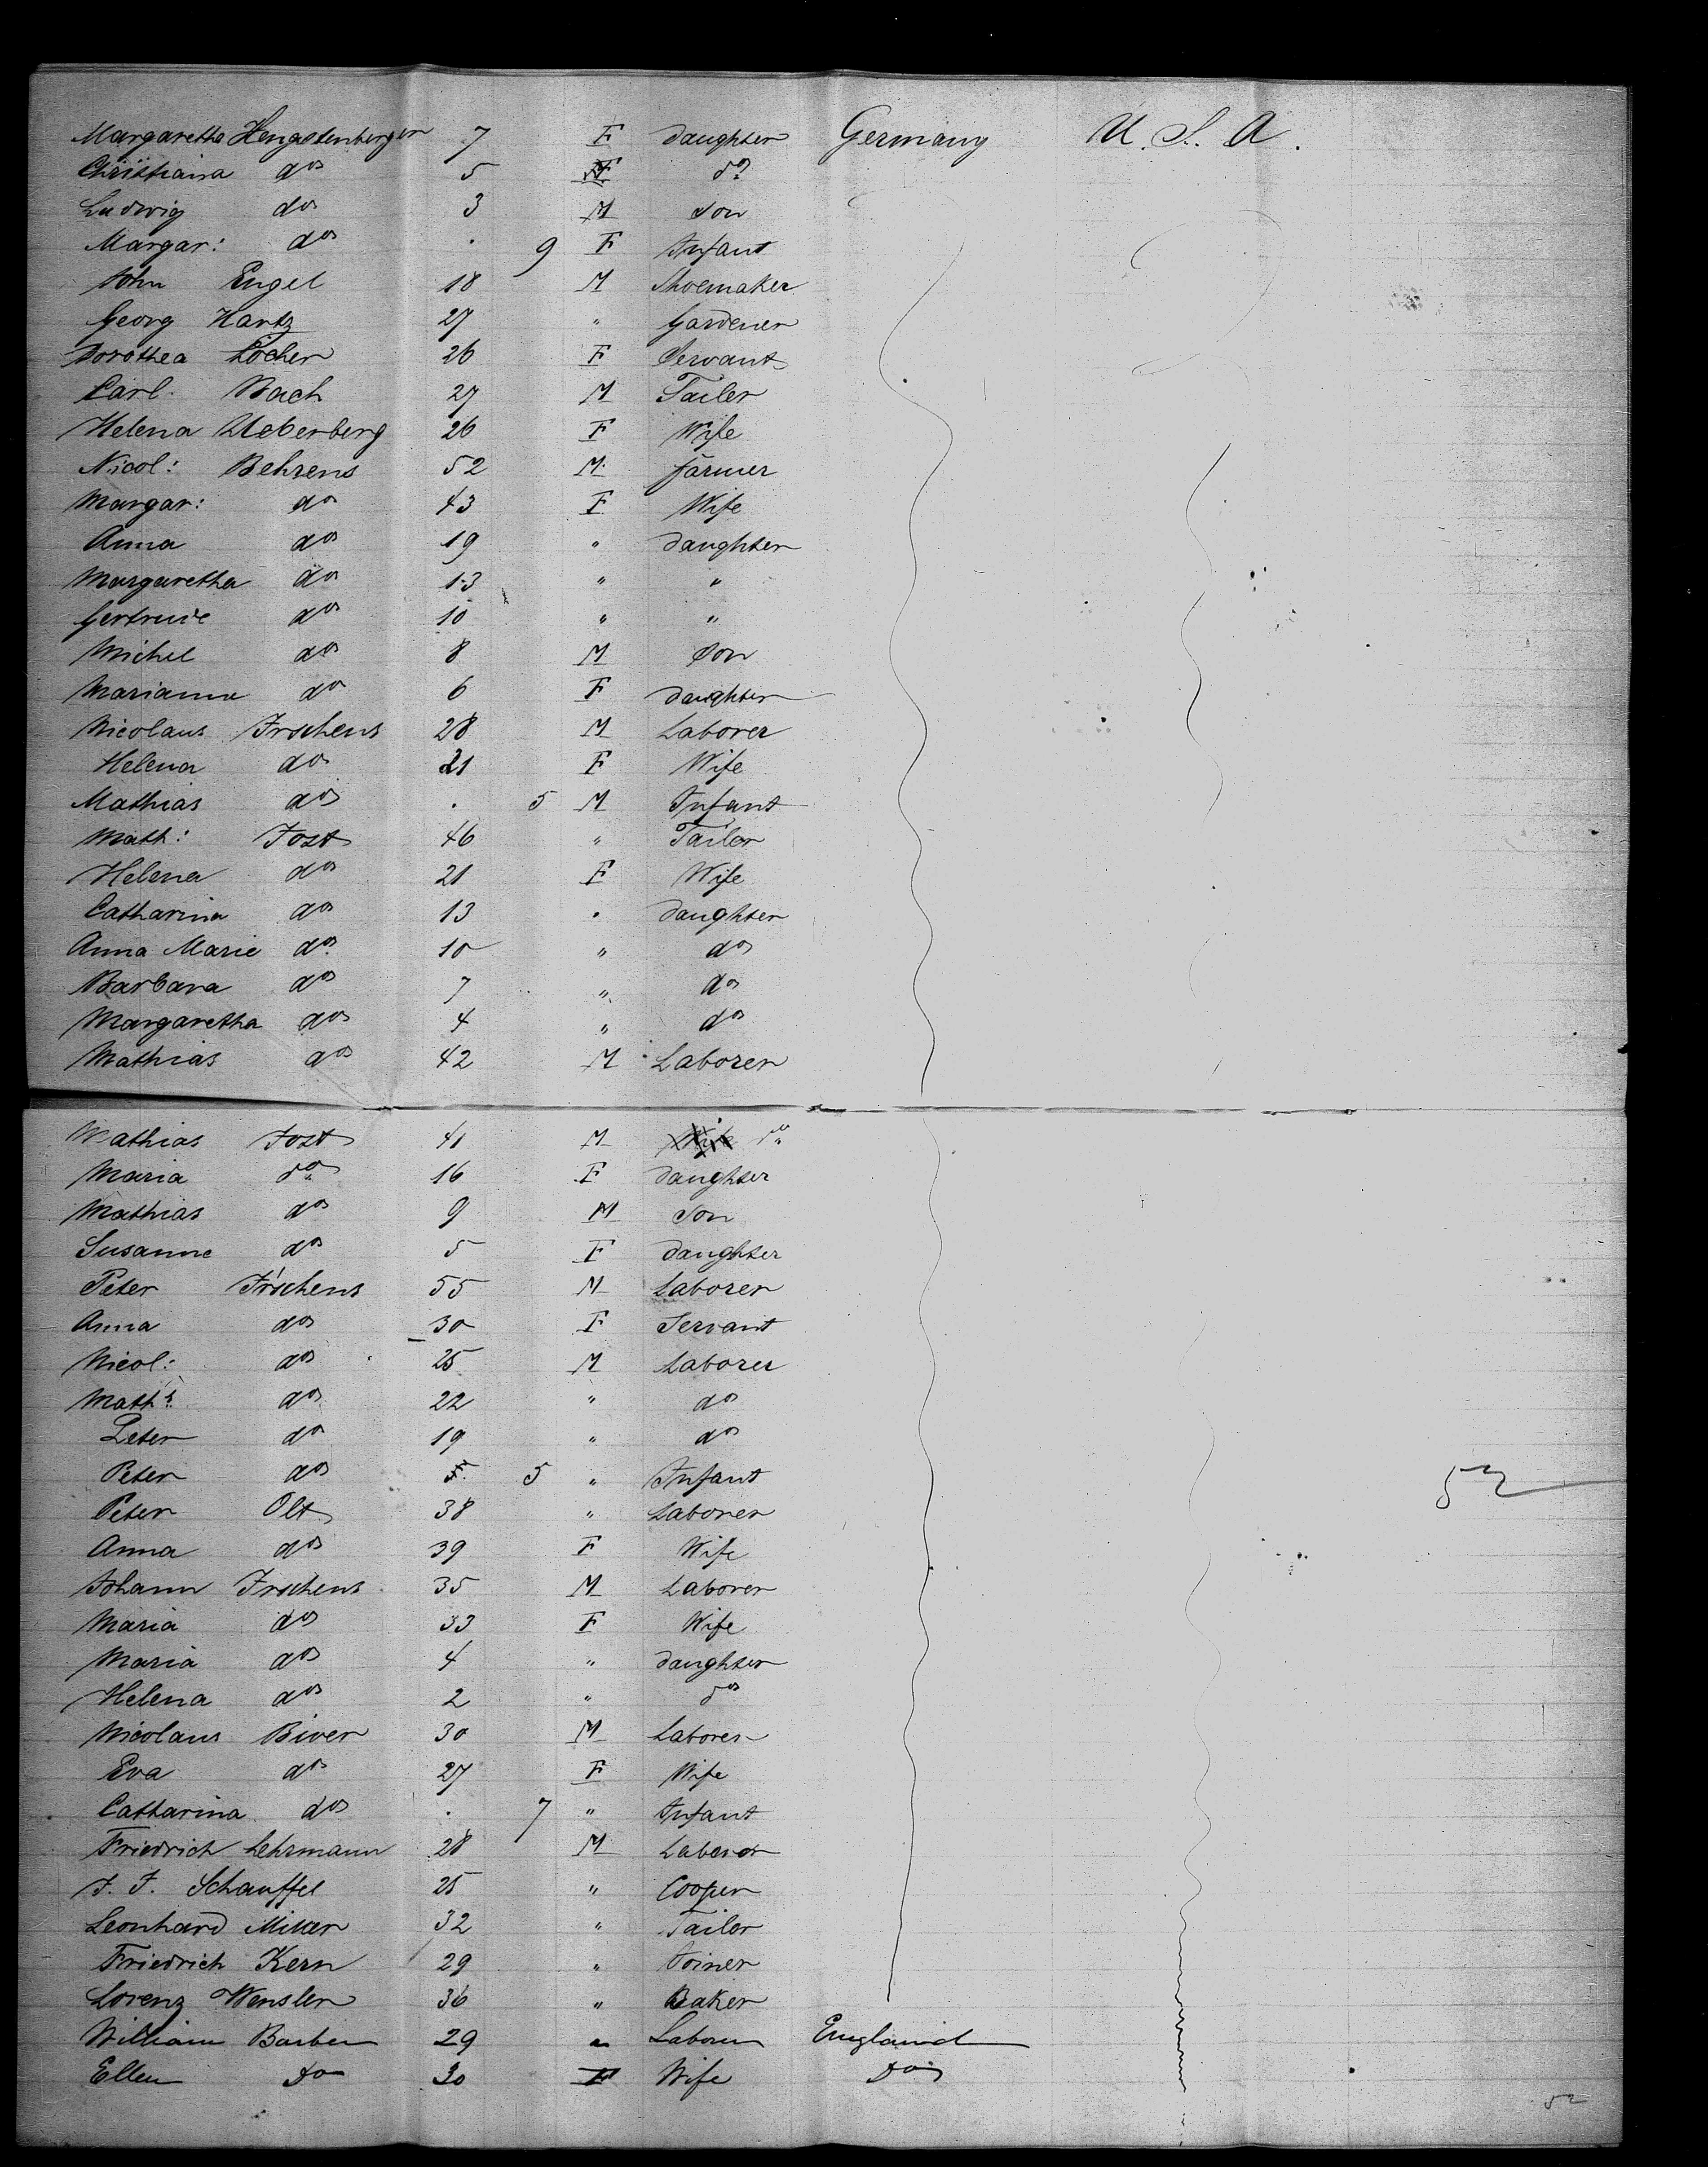 Margaretha Hengstenberger 7 F daughter Germany U. S. A.
Christiana do 5 F do
Ludwig do 3 M Son
Margar: do . 9 F Infant
John Engel 18 M Shoemaker
Georg Hartz 27 " Gardener
Dorothea Locher 26 F Servant
Carl Bach 27 M Tailer
Helena Ueberberg 26 F Wife
Nicol: Behrens 52 M farmer
Margar: do 43 F Wife
Anna do 19 " daughter
Margaretha do 13 " "
Gertrude do 10 " "
Michel do 8 M Son
Marianna do 6 F daughter
Nicolaus Irschens 28 M Laborer
Helena do 21 F Wife
Mathias do . 5 M Infant
Math: Jost 46 " Tailor
Helena do 21 F Wife
Catharina do 13 " daughter
Anna Marie do 10 " do
Barbara do 7 " do
Margaretha do 4 " do
Mathias do 42 M Laborer
Mathias Jost 41 M Wife do
Maria do 16 F daughter
Mathias do 9 M Son
Susanne do 5 F daughter
Peter Irschens 55 M Laborer
Anna do 30 F Servant
Nicol: do 25 M Laborer
Math: do 22 " do
Peter do 19 " do
Peter do 5 " Infant
Peter Olt 38 " Laborer
52
Anna do 39 F Wife
Johann Irschens 35 M Laborer
Maria do 33 F Wife
Maria do 4 " daughter
Helena do 2 " do
Nicolaus Biver 30 M Laborer
Eva do 27 F Wife
Catharina do . 7 " Infant
Friedrich Lehrmann 28 M Laboror
J. F. Schauffel 25 " Cooper
Leonhard Miller 32 " Tailor
Friedrich Kern 29 " Joiner
Lorenz Wensler 36 " Baker
William Barber 29 " Laborer England
Ellen Do 30 F Wife Do
52